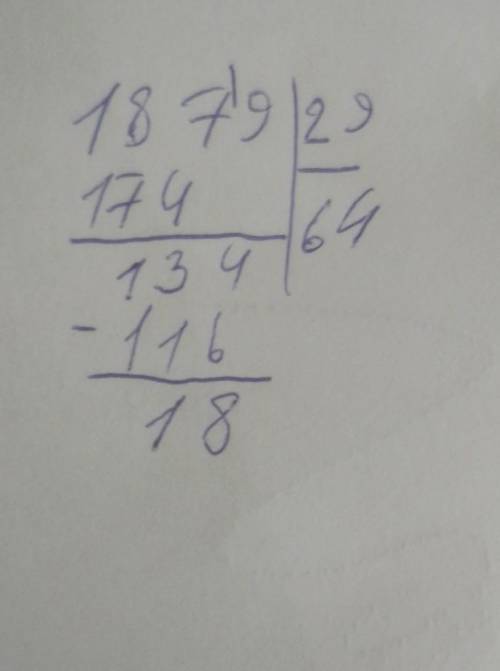 18 79 29
174 64
134
- 116
18